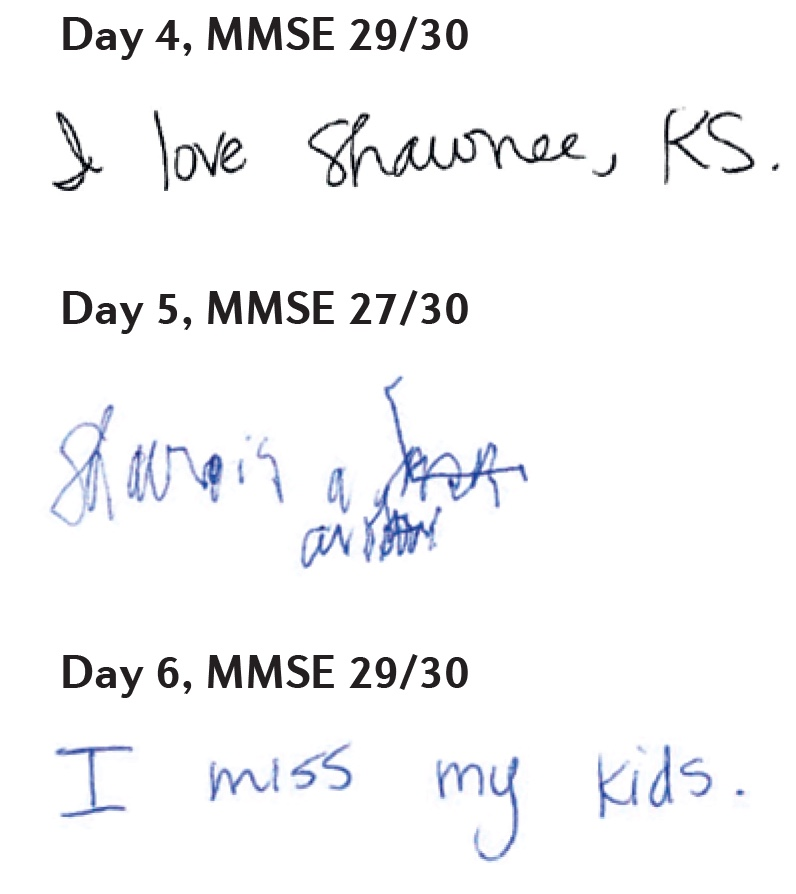 Day 4, MMSE 29/30
I love Shawnee, KS.
Day 5, MMSE 27/30
a
Day 6, MMSE 29/30
I miss my kids.